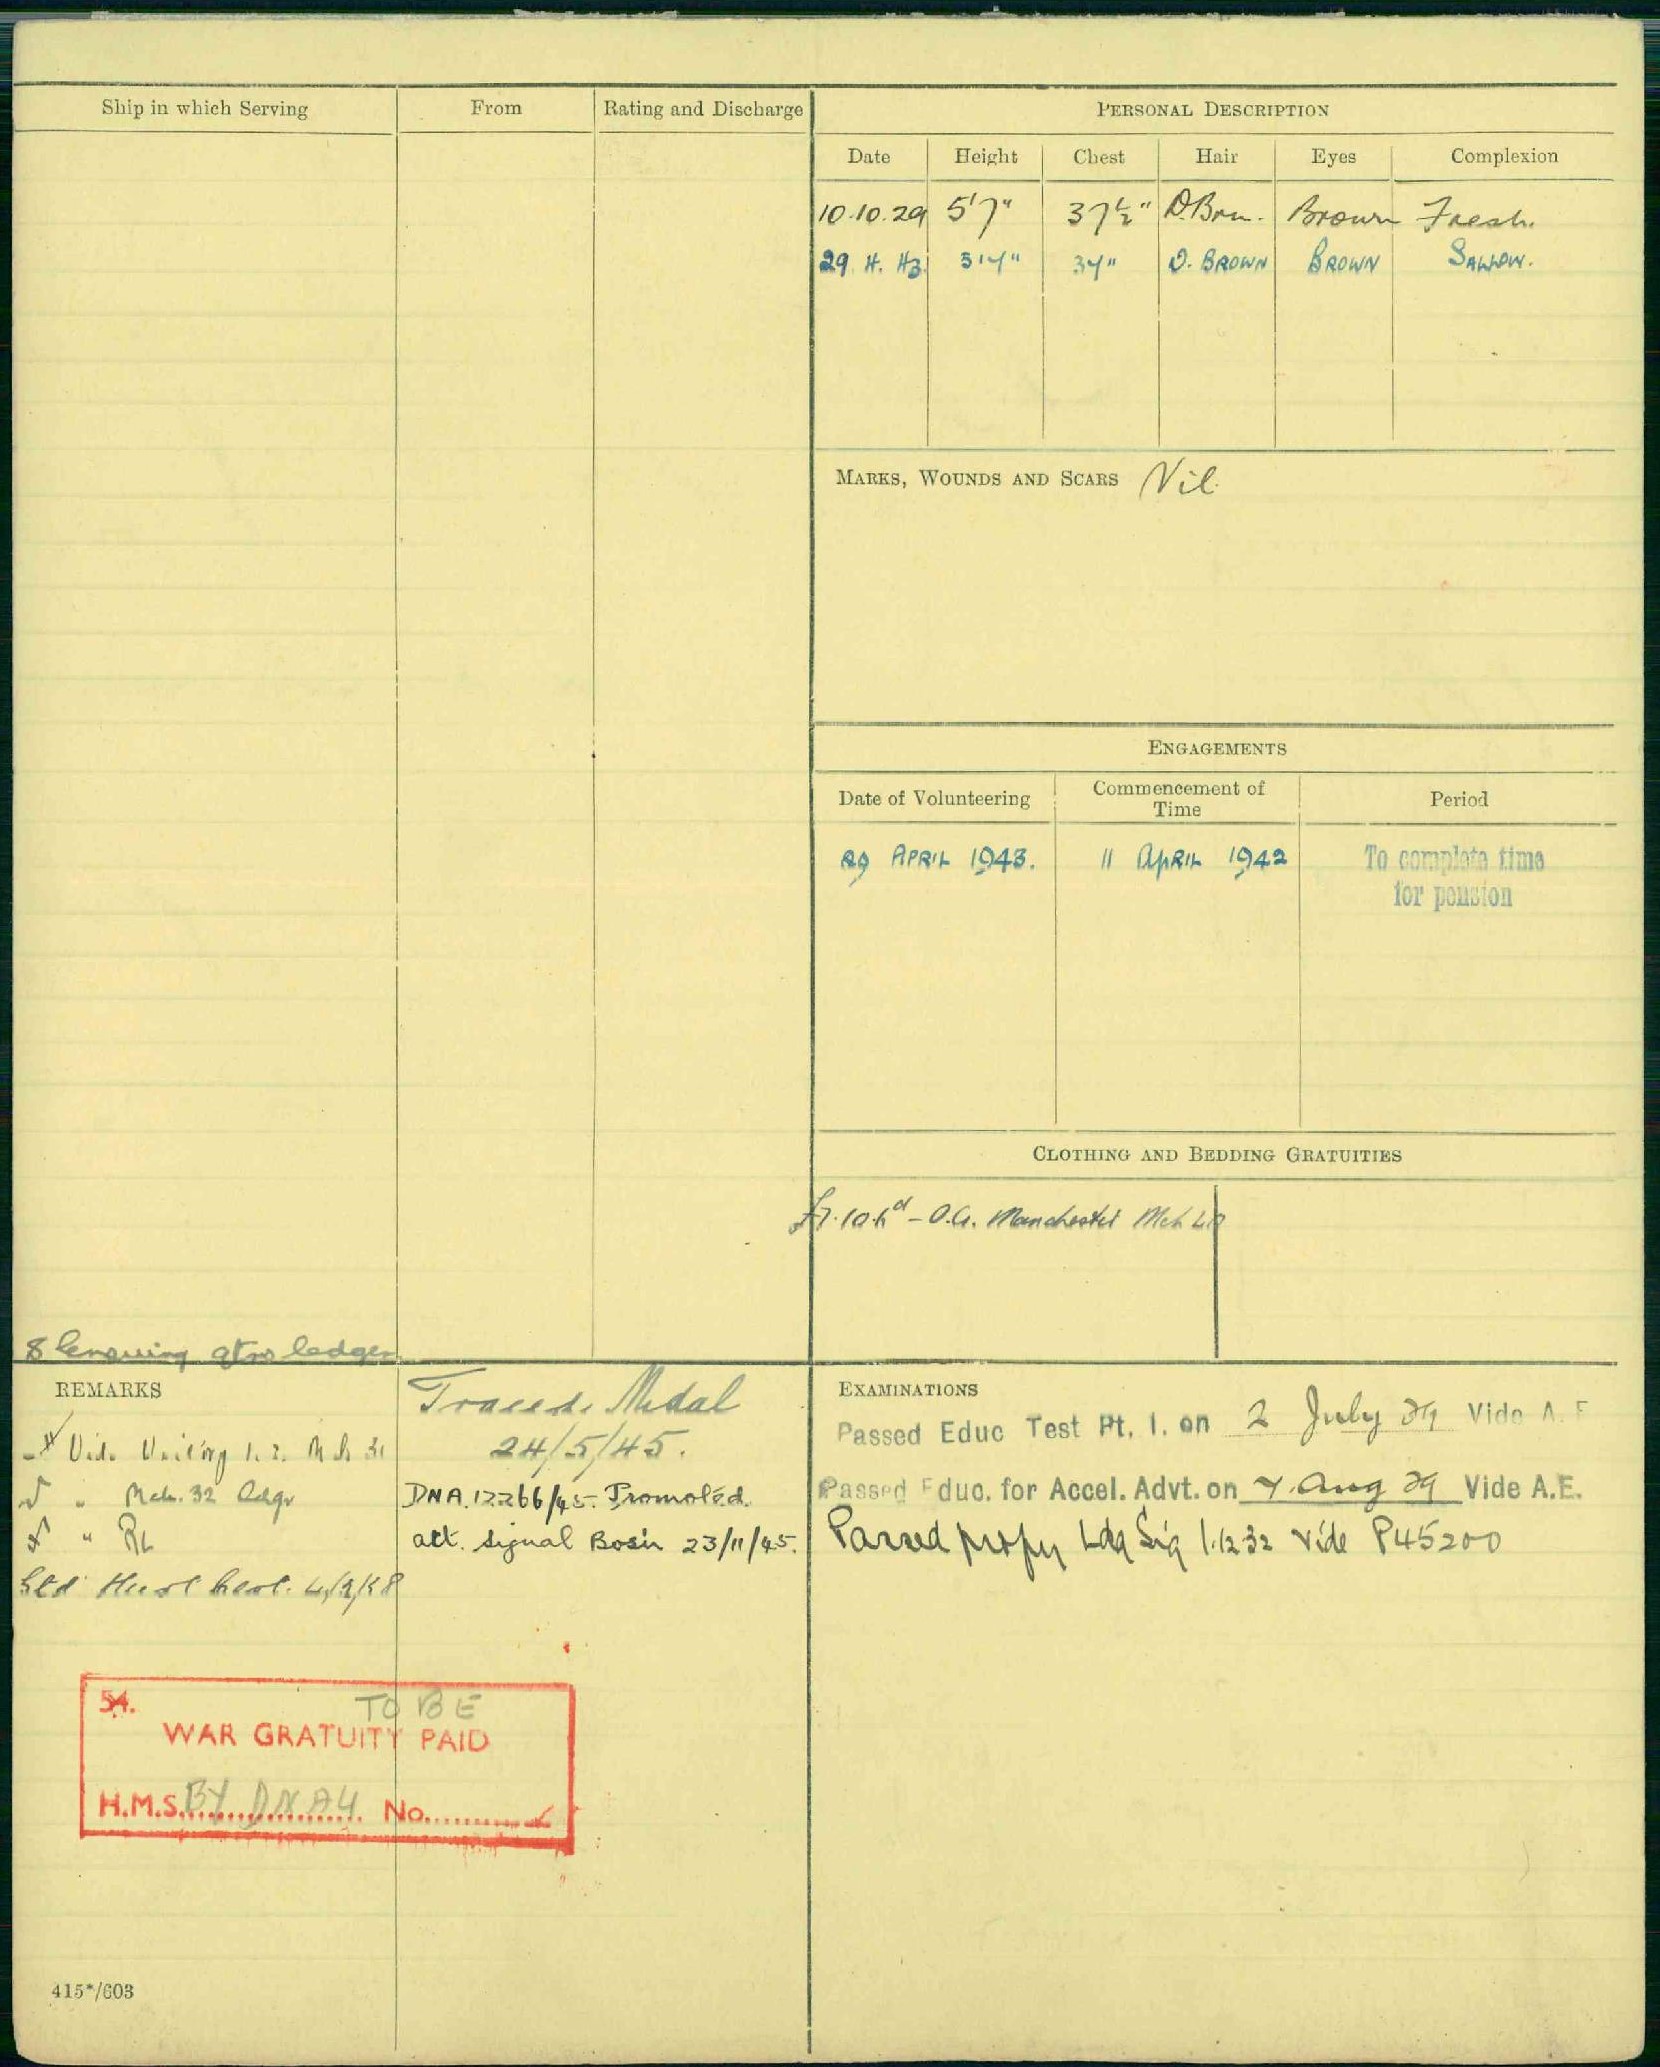 Ship in which Serving From Rating and Discharge
PERSONAL DESCRIPTION
Date Height Chest Hair Eyes Complexion
10.10.29 5'7" 37½" D.Brn. Brown Fresh.
29. 4. 43 34" D. BROWN BROWN SALLOW.
MARKS, WOUNDS AND SCARS Nil
ENGAGEMENTS
Date of Volunteering Commencement of Time Period
29 APRIL 1943. 11 APRIL 1942 To complete time
for pension
CLOTHING AND BEDDING GRATUITIES
O.A. Manchester Mch
8 qtrs ledger
REMARKS
Medal
24/5/45.
Mch. 32
" RL
DNA.12266/45. Promoted
act. Signal Bosun 23/11/45.
4/2/38
EXAMINATIONS
Passed Educ Test Pt. I. on 2 July 29 Vide A. F
Passed Educ. for Accel. Advt. on 7. Aug 29 Vide A.E.
Passed Ldg Sig 1.12.32 vide P45200
54. TO BE
WAR GRATUITY PAID
H.M.S. BY DNA4 No.
415*/603